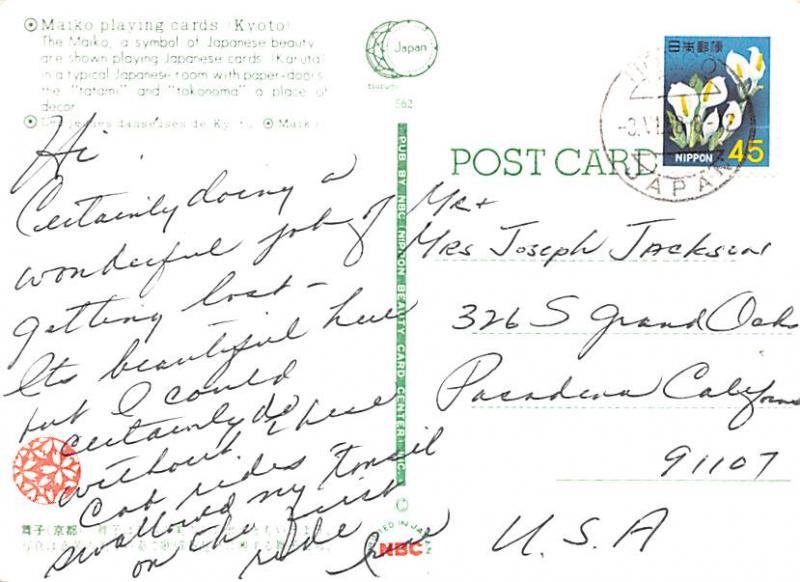 Maiko playing cards (Kyoto)
The Maiko, a symbol of Japanese beauty
are shown playing Japanese cards (Karuta)
in a typical Japanese room with paper-doors
the "tatami" and "tokonoma" a place of
decor
Les jeunes danseuses de Kyoto Maiko
Hi
Certainly doing a
wonderful job of
getting lost -
Its beautiful here
but I could
certainly do
without these
Cab rides tonsil
swallowed my
on the first
ride here
舞子(京都)
Japan
tsutsumi
562
PUB BY NBC NIPPON BEAUTY CARD CENTER, INC.
©
PRINTED IN JAPAN
NBC
POST CARD
日本郵便
NIPPON 45
JAPAN
Mr +
Mrs Joseph Jackson
326 S Grand Oaks
Pasadena California
91107
U.S.A